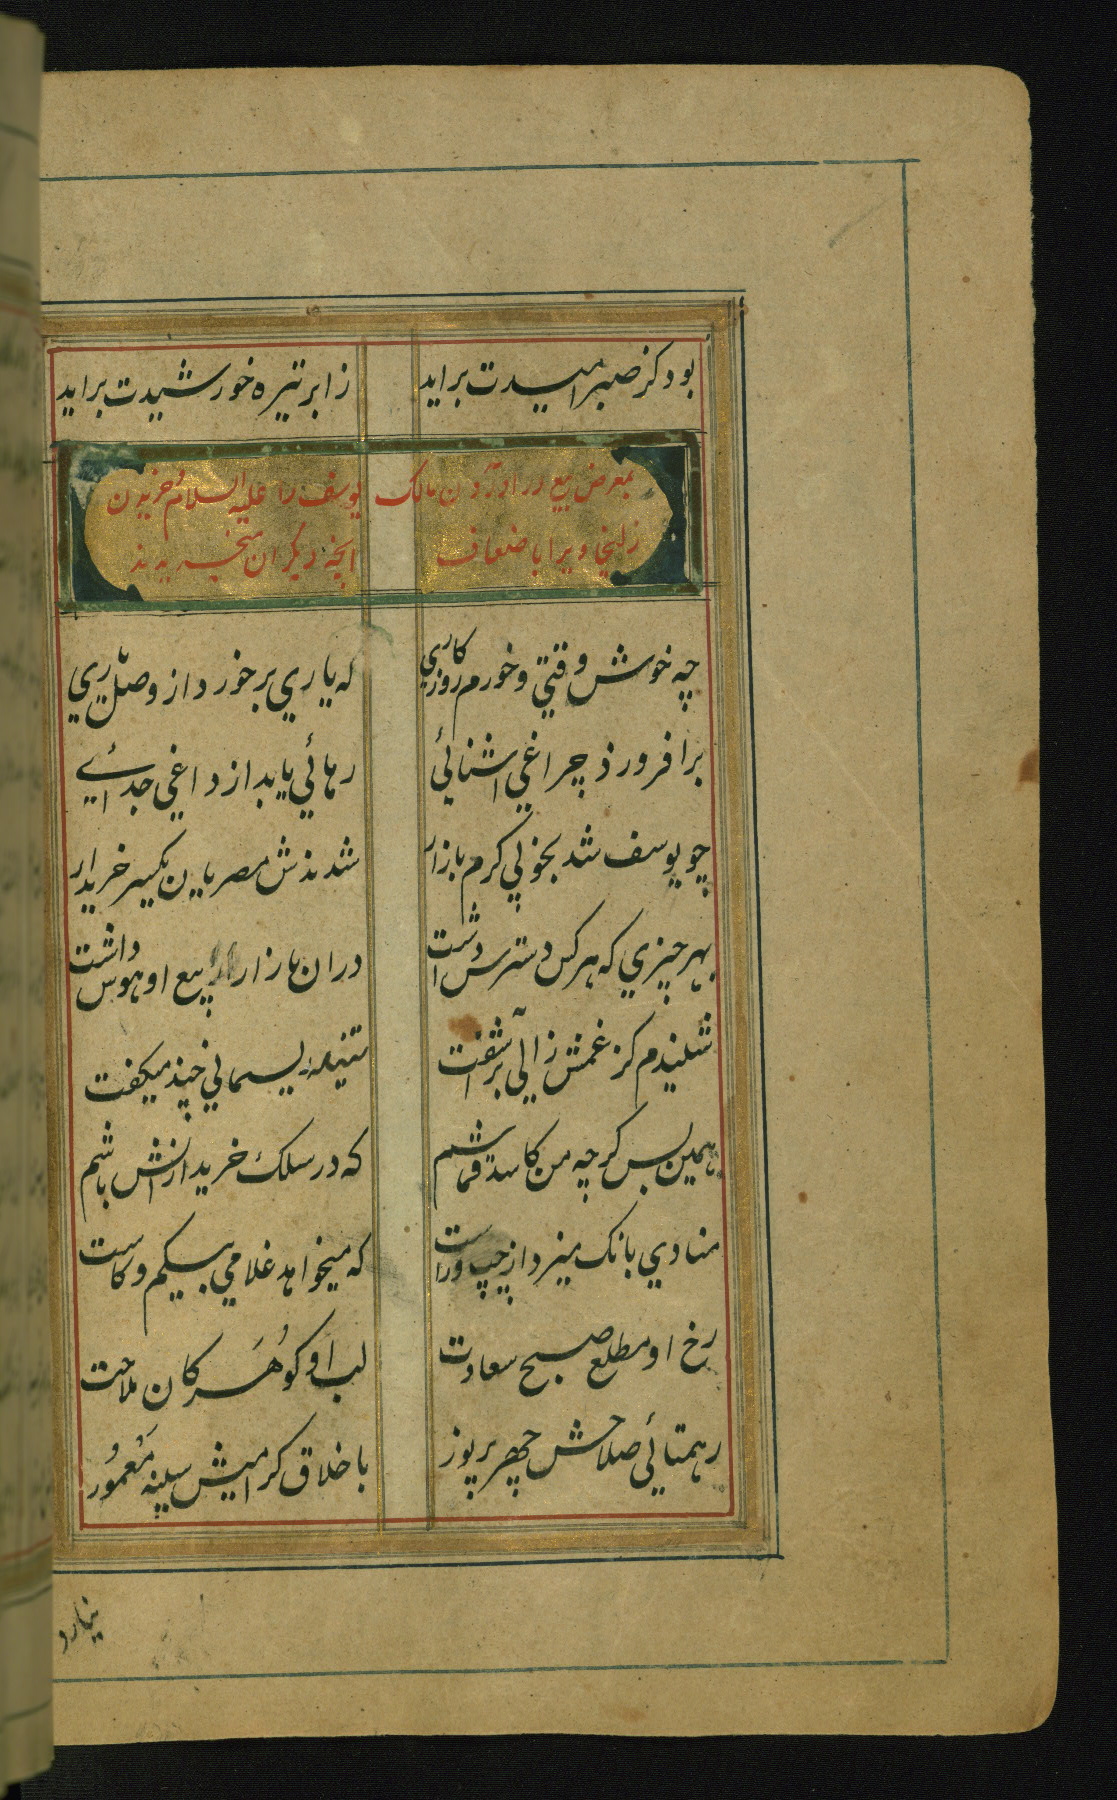 بود کز صبر امیدت براید ز ابر تیره خورشیدت براید
بمعرض بیع در اوردن مالک یوسف را علیه السلام و خریدن
زلیخا ویرا باضعاف انچه دیگران میخریدند
چه خوش وقتی و خورم روزکاری که یاری بر خورد از وصل یاری
برافروزد چراغی اشنائی رهائی یابد از داغی جدائے
چو یوسف شد بخوبی کرم بازار شدندش مصریان یکسر خریدار
بهر چیزی که هر کس دسترس داشت دران بازار بیع او هوس داشت
شنیدم کز غمش زالی براشفت تنیده ریسمانی چند میکفت
همین بس کرچه من کاسد قماشم که در سلک خریدارانش باشم
منادی بانک میزد از چپ و راست که میخواهد غلامی بیکم و کاست
رخ او مطلع صبح سعادت لب او کوهر کان ملاحت
سیمای صلاحش چهر پرنور باخلاق کرامیش سینه معمور
نیارد